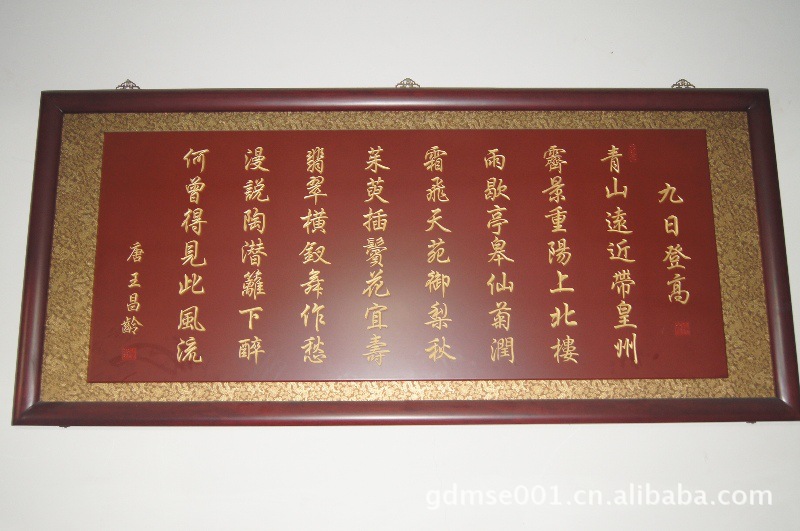 九日登高
青山遠近帶皇州
霽景重陽上北樓
雨歇亭皋仙菊潤
霜飛天苑御梨秋
茱萸插鬢花宜壽
翡翠橫釵舞作愁
漫說陶潛籬下醉
何曾得見此風流
唐王昌齡
gdmse001.cn.alibaba.com